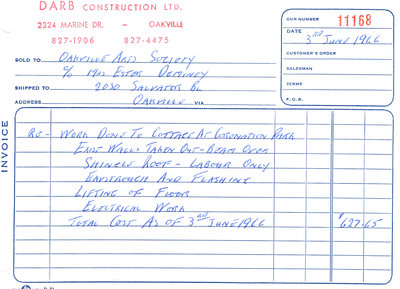 DARB CONSTRUCTION LTD.
2324 MARINE DR. - OAKVILLE
827-1906 827-4475
OUR NUMBER 11168
DATE 3RD JUNE 1966
CUSTOMER'S ORDER
SALESMAN
TERMS
F.O.B.
SOLD TO OAKVILLE ARTS SOCIETY
c/o MRS ESTOR
SHIPPED TO 2030
ADDRESS OAKVILLE VIA
INVOICE
RE- WORK DONE TO COTTAGE AT CORONATION PARK
EAST WALL TAKEN OUT - BEAM OVER
SHINGLE ROOF - LABOUR ONLY
EAVSTROUGH AND FLASHING
LIFTING OF FLOOR
ELECTRICAL WORK
TOTAL COST AS OF 3RD JUNE 1966 $627-65